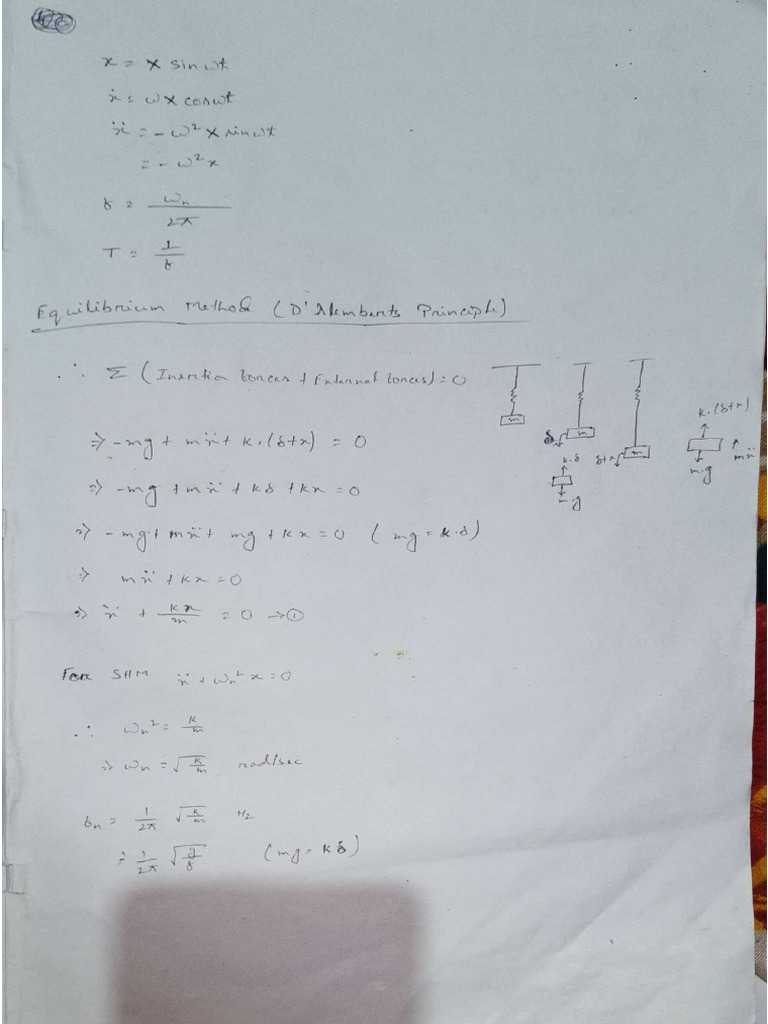 x = X sin ωt
ẋ = ωX cos ωt
ẍ = - ω² X sin ωt
= - ω² x
f = ωn / 2π
T = 1 / f
Equilibrium Method (D'Alemberts Principle)
∴ Σ (Inertia forces + External forces) = 0
⇒ -mg + mẍ + k.(δ+x) = 0
⇒ -mg + mẍ + kδ + kx = 0
⇒ -mg + mẍ + mg + kx = 0 (mg = k.δ)
⇒ mẍ + kx = 0
⇒ ẍ + kx / m = 0 → ①
m
δ
m
k.δ
m.g
δ+x
m
k.(δ+x)
mẍ
m.g
For SHM ẍ + ωn² x = 0
∴ ωn² = k / m
⇒ ωn = √(k/m) rad/sec
fn = 1/2π √(k/m) Hz
= 1/2π √(g/δ) (mg = kδ)